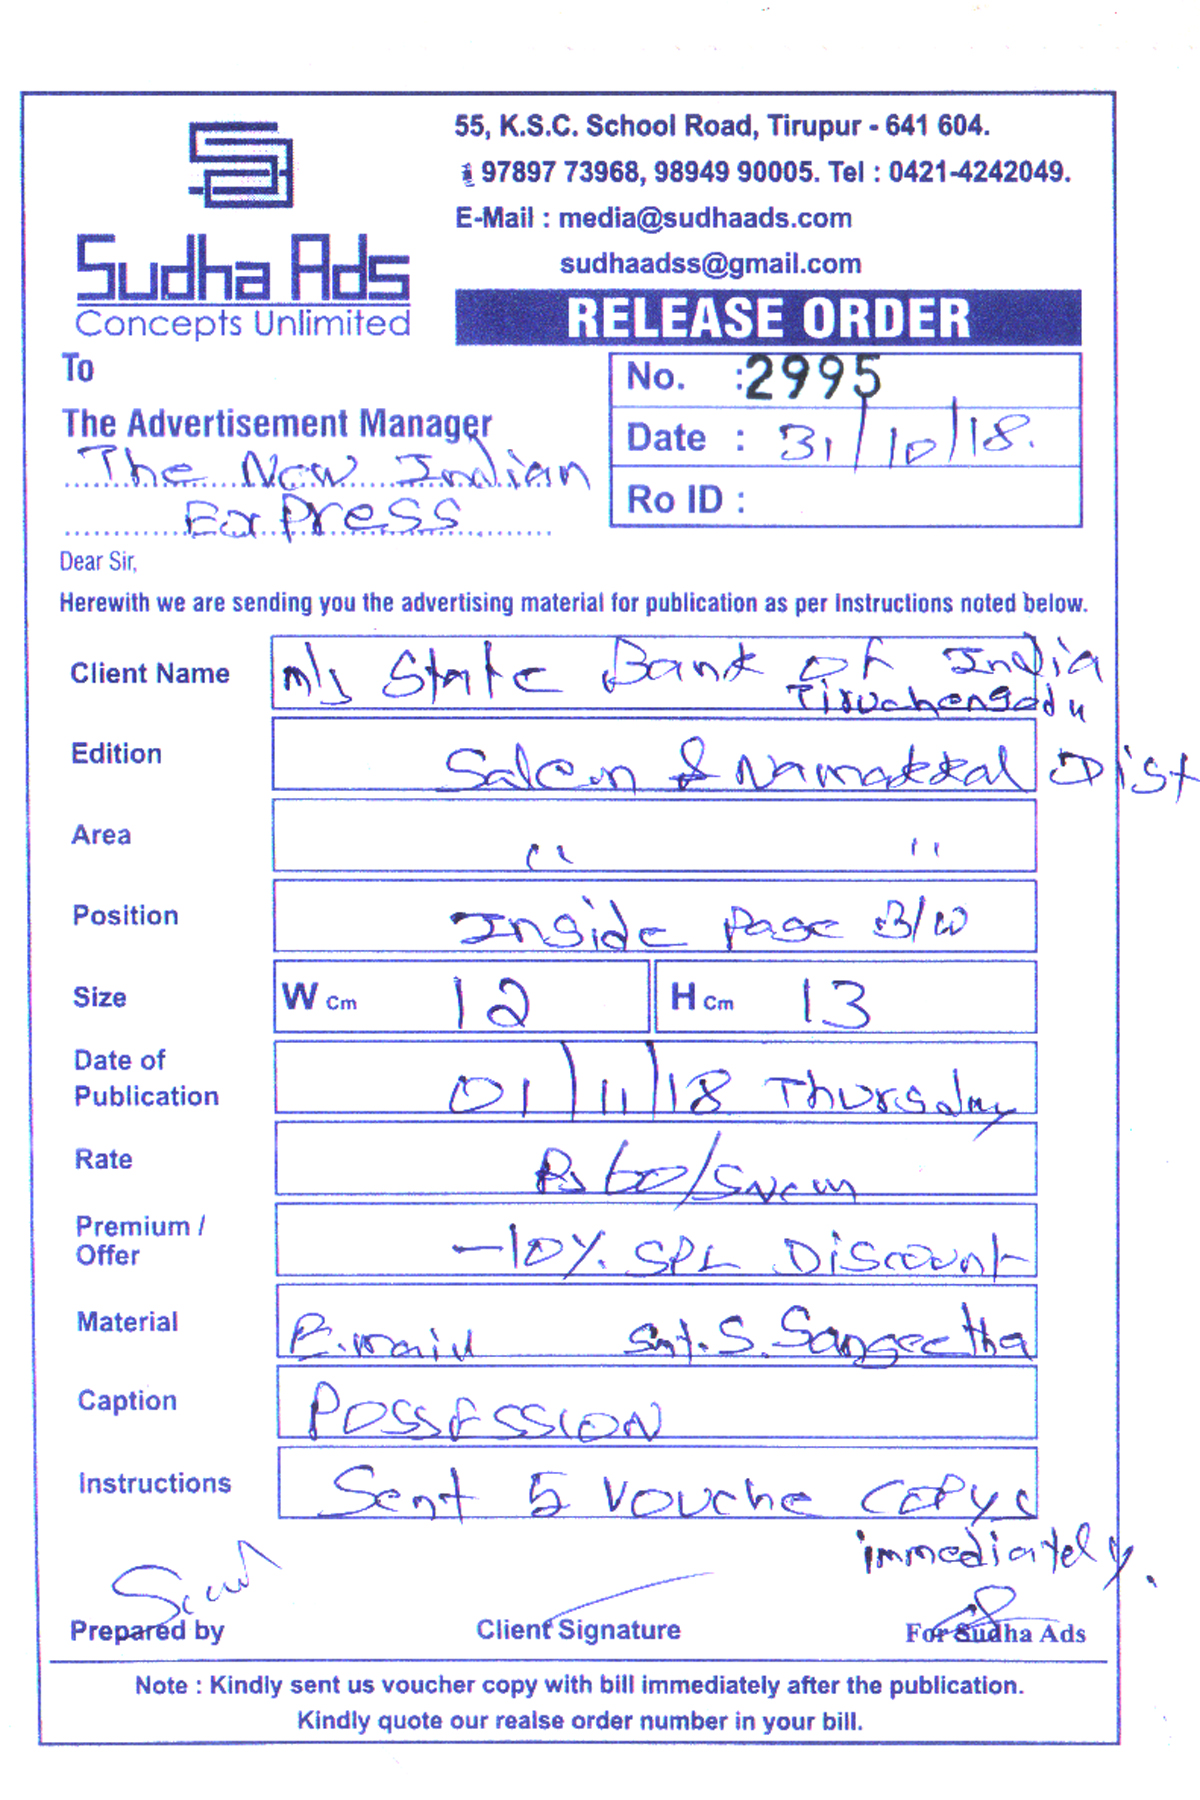 55, K.S.C. School Road, Tirupur - 641 604.
97897 73968, 98949 90005. Tel : 0421-4242049.
E-Mail : media@sudhaads.com
sudhaadss@gmail.com
Sudha Ads
Concepts Unlimited
RELEASE ORDER
To
The Advertisement Manager
The New Indian
ExPress
No. :2995
Date : 31/10/18.
Ro ID :
Dear Sir,
Herewith we are sending you the advertising material for publication as per Instructions noted below.
Client Name M/s State Bank of India
Tiruchengodu
Edition Salem & Namakkal Dist
Area " "
Position Inside Page B/W
Size W Cm 12 H Cm 13
Date of Publication 01/11/18 Thursday
Rate Rs 60/Sqcm
Premium / Offer -10% SPL Discount
Material E.mail Smt. S. Sangeetha
Caption POSSESSION
Instructions Sent 5 Vouche Copys
immediately.
Prepared by Client Signature For Sudha Ads
Note : Kindly sent us voucher copy with bill immediately after the publication.
Kindly quote our realse order number in your bill.